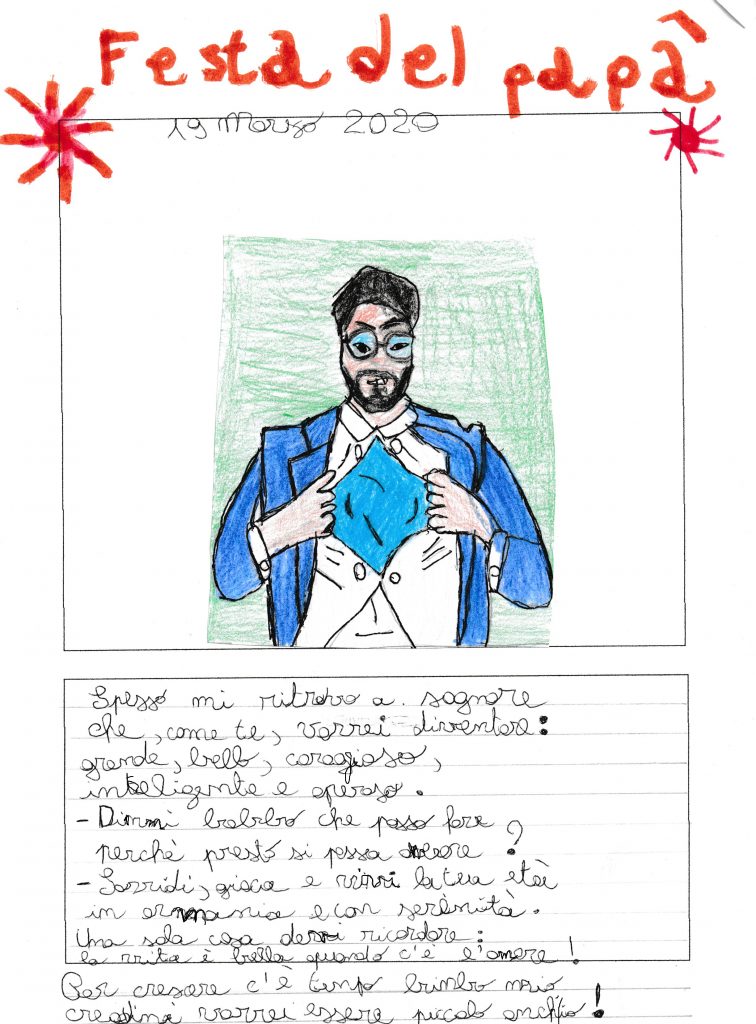 Festa del papà
19 Marzo 2020
Spesso mi ritrovo a sognare
che, come te, vorrei diventare:
grande, bello, coragioso,
intelligente e operoso.
- Dimmi babbo che posso fare
perchè presto si possa ?
- Sorridi, gioca e vivi la tua età
in armania e con serènità.
Una sola cosa devi ricordare:
la vita è bella quando c'è l'amore!
Per crescere c'è tempo bimbo mio
vorrei essere piccolo anch'io!